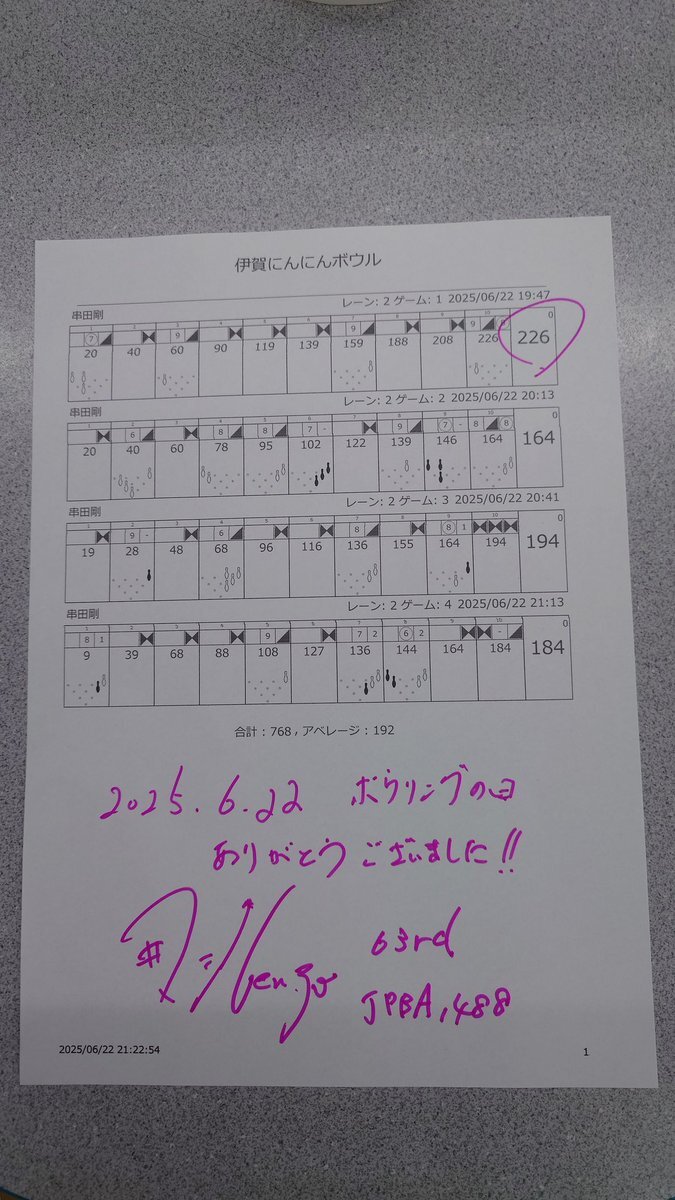 伊賀にんにんボウル
レーン: 2 ゲーム: 1 2025/06/22 19:47
串田剛
1 2 3 4 5 6 7 8 9 10 0
7 9 9 9 8
20 40 60 90 119 139 159 188 208 226 226
レーン: 2 ゲーム: 2 2025/06/22 20:13
串田剛
1 2 3 4 5 6 7 8 9 10 0
6 8 8 7 - 9 7 - 8 8
20 40 60 78 95 102 122 139 146 164 164
レーン: 2 ゲーム: 3 2025/06/22 20:41
串田剛
1 2 3 4 5 6 7 8 9 10 0
9 - 6 8 8 1
19 28 48 68 96 116 136 155 164 194 194
レーン: 2 ゲーム: 4 2025/06/22 21:13
串田剛
1 2 3 4 5 6 7 8 9 10 0
8 1 9 7 2 6 2 -
9 39 68 88 108 127 136 144 164 184 184
合計：768 , アベレージ：192
2025.6.22 ボウリングの日
ありがとうございました!!
63rd
JPBA,488
2025/06/22 21:22:54 1